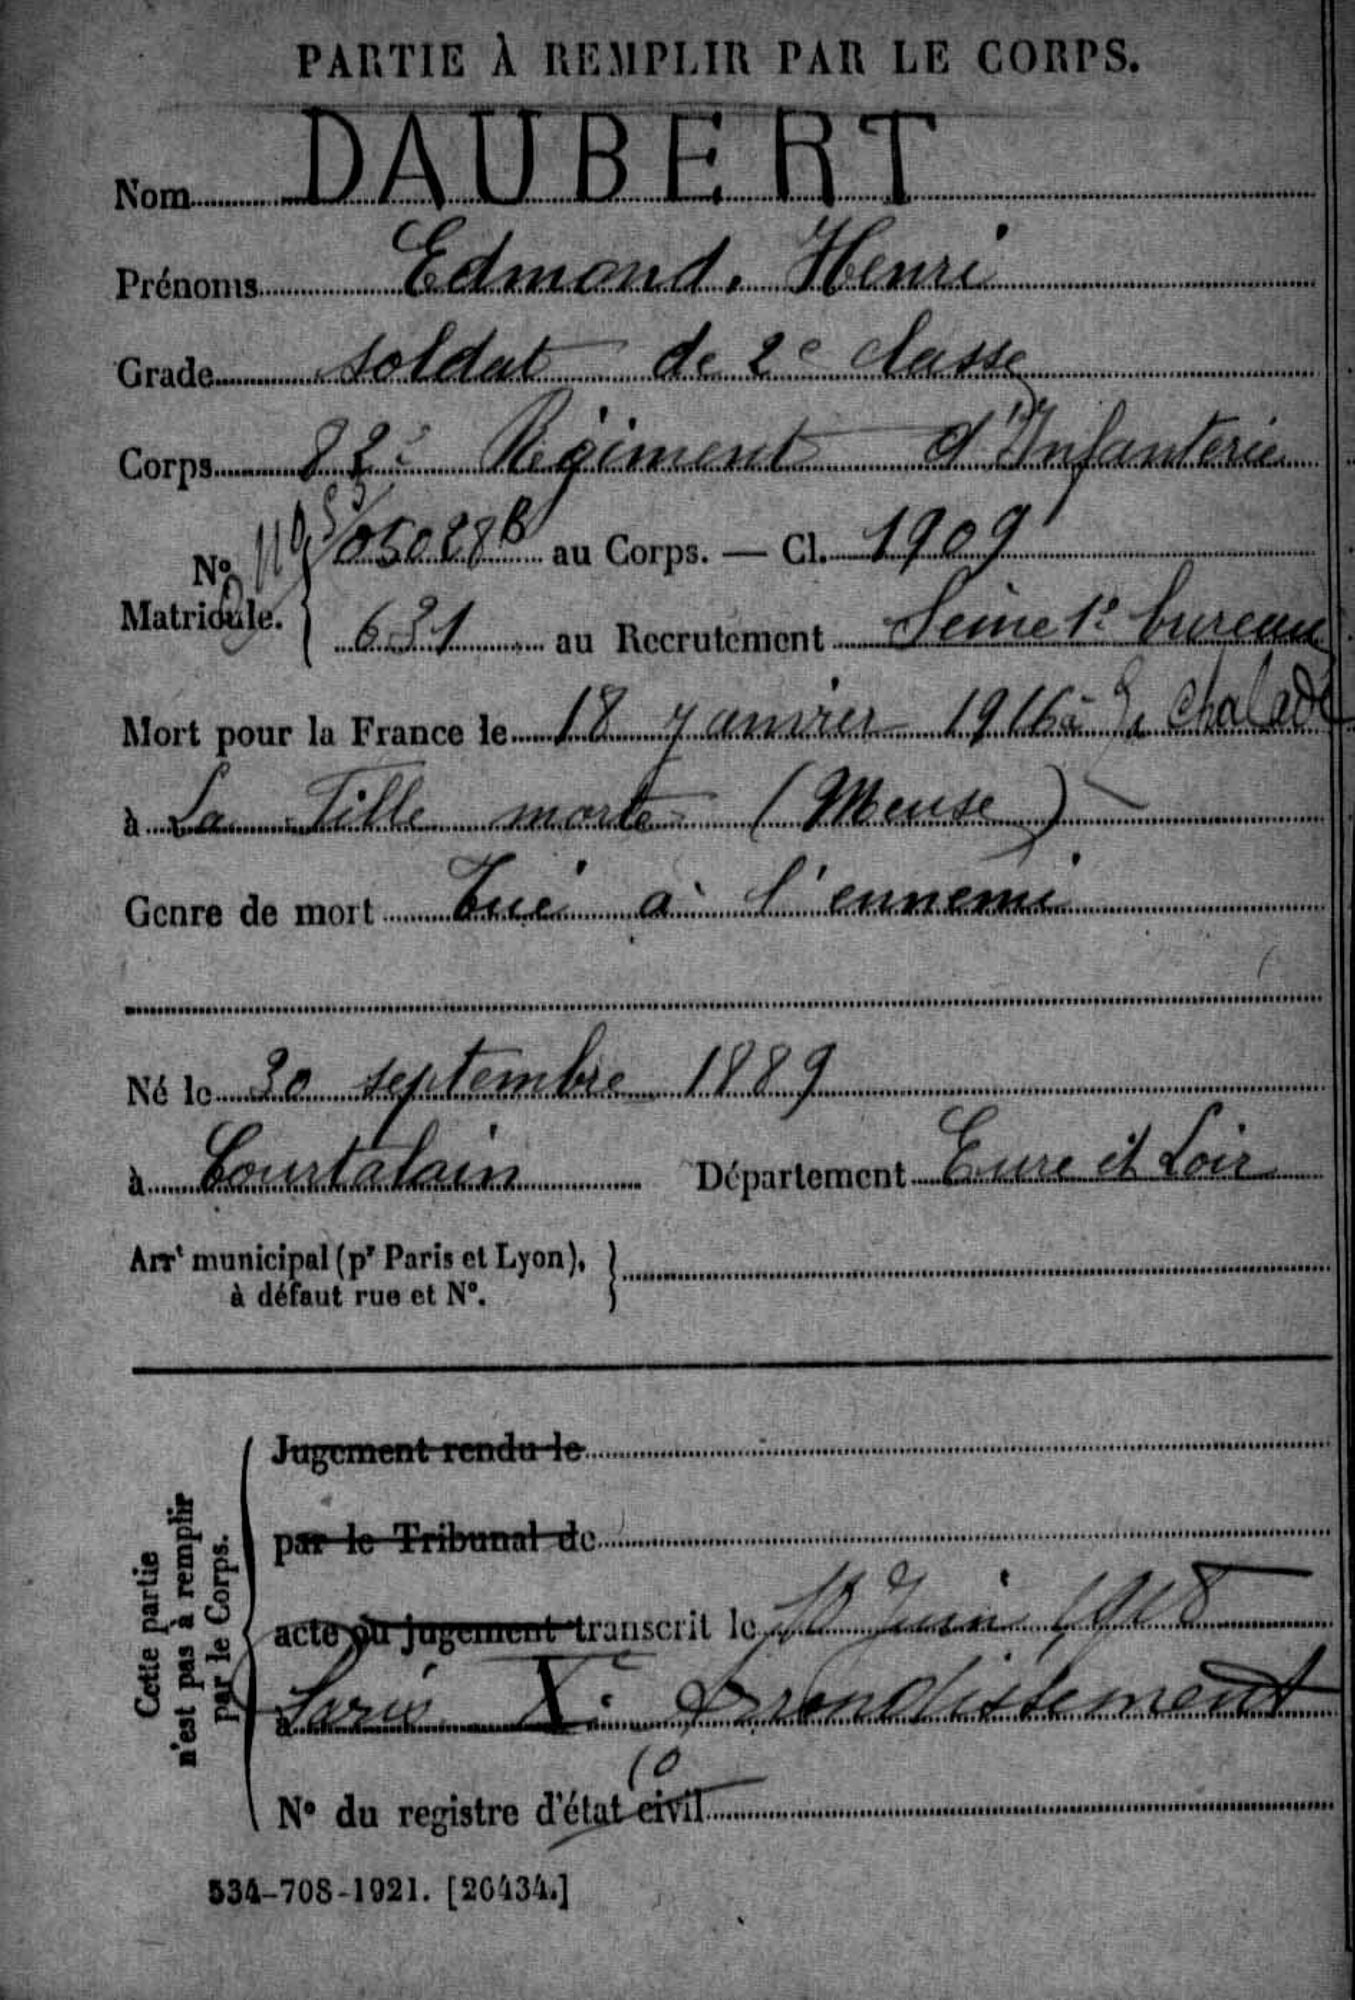 PARTIE À REMPLIR PAR LE CORPS.
Nom DAUBERT
Prénoms Edmond, Henri
Grade soldat de 2e classe
Corps 82e Régiment d'Infanterie
No Matricule. au Corps. — Cl. 1909
631 au Recrutement Seine 1e bureau
Mort pour la France le 18 Janvier 1916 à La Chalade
à La Fille morte (Meuse)
Genre de mort Tué à l'ennemi
Né le 30 septembre 1889
à Courtalain Département Eure et Loir
Arrt municipal (pr Paris et Lyon),
à défaut rue et No.
Cette partie
n'est pas à remplir
par le Corps.
Jugement rendu le
par le Tribunal de
acte ou jugement transcrit le 10 Juin 1918
à Paris Xe Arrondissement
10
No du registre d'état civil
534-708-1921. [26434.]